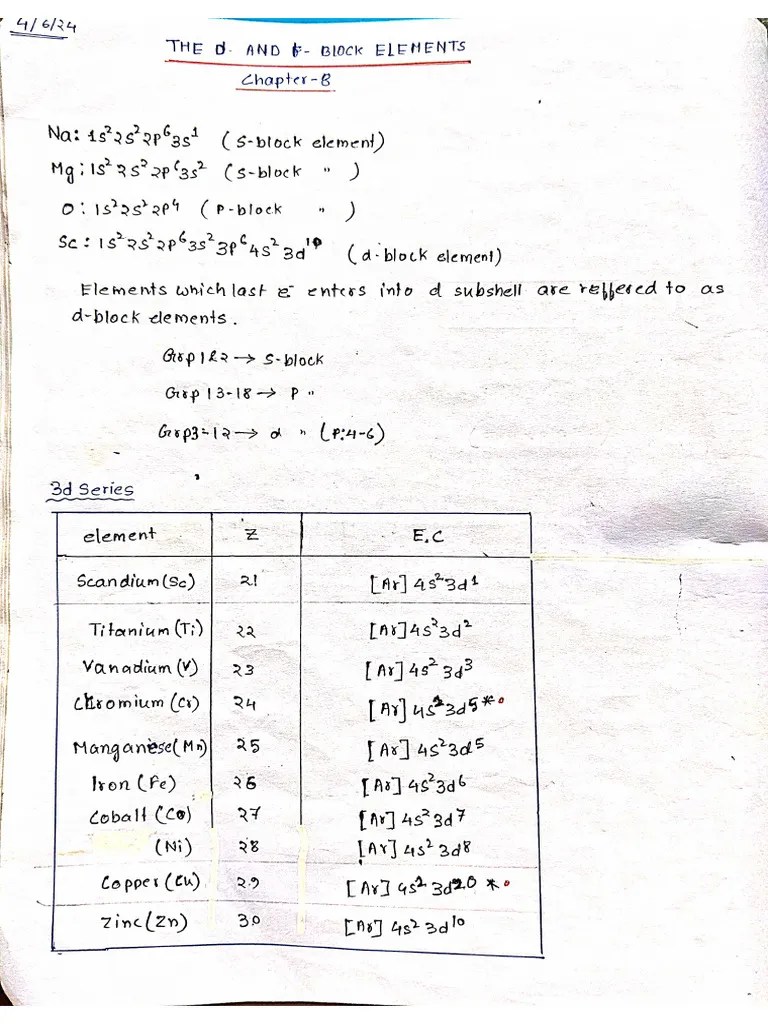 4/6/24
THE d- AND f- BLOCK ELEMENTS
Chapter-8
Na: 1s² 2s² 2p⁶ 3s¹ (S-block element)
Mg: 1s² 2s² 2p⁶ 3s² (S-block " )
O: 1s² 2s² 2p⁴ (P-block " )
Sc: 1s² 2s² 2p⁶ 3s² 3p⁶ 4s² 3d¹⁰ (d-block element)
Elements which last e⁻ enters into d subshell are reffered to as
d-block elements.
Grp 1&2 → S-block
Grp 13-18 → P "
Grp3-12 → d " (P:4-6)
3d Series
element Z E.C
Scandium(Sc) 21 [Ar] 4s² 3d¹
Titanium(Ti) 22 [Ar] 4s² 3d²
Vanadium(V) 23 [Ar] 4s² 3d³
Chromium(Cr) 24 [Ar] 4s 3d⁵ *
Manganese(Mn) 25 [Ar] 4s² 3d⁵
Iron(Fe) 26 [Ar] 4s² 3d⁶
Cobalt(Co) 27 [Ar] 4s² 3d⁷
(Ni) 28 [Ar] 4s² 3d⁸
Copper(Cu) 29 [Ar] 4s 3d *
Zinc(Zn) 30 [Ar] 4s² 3d¹⁰